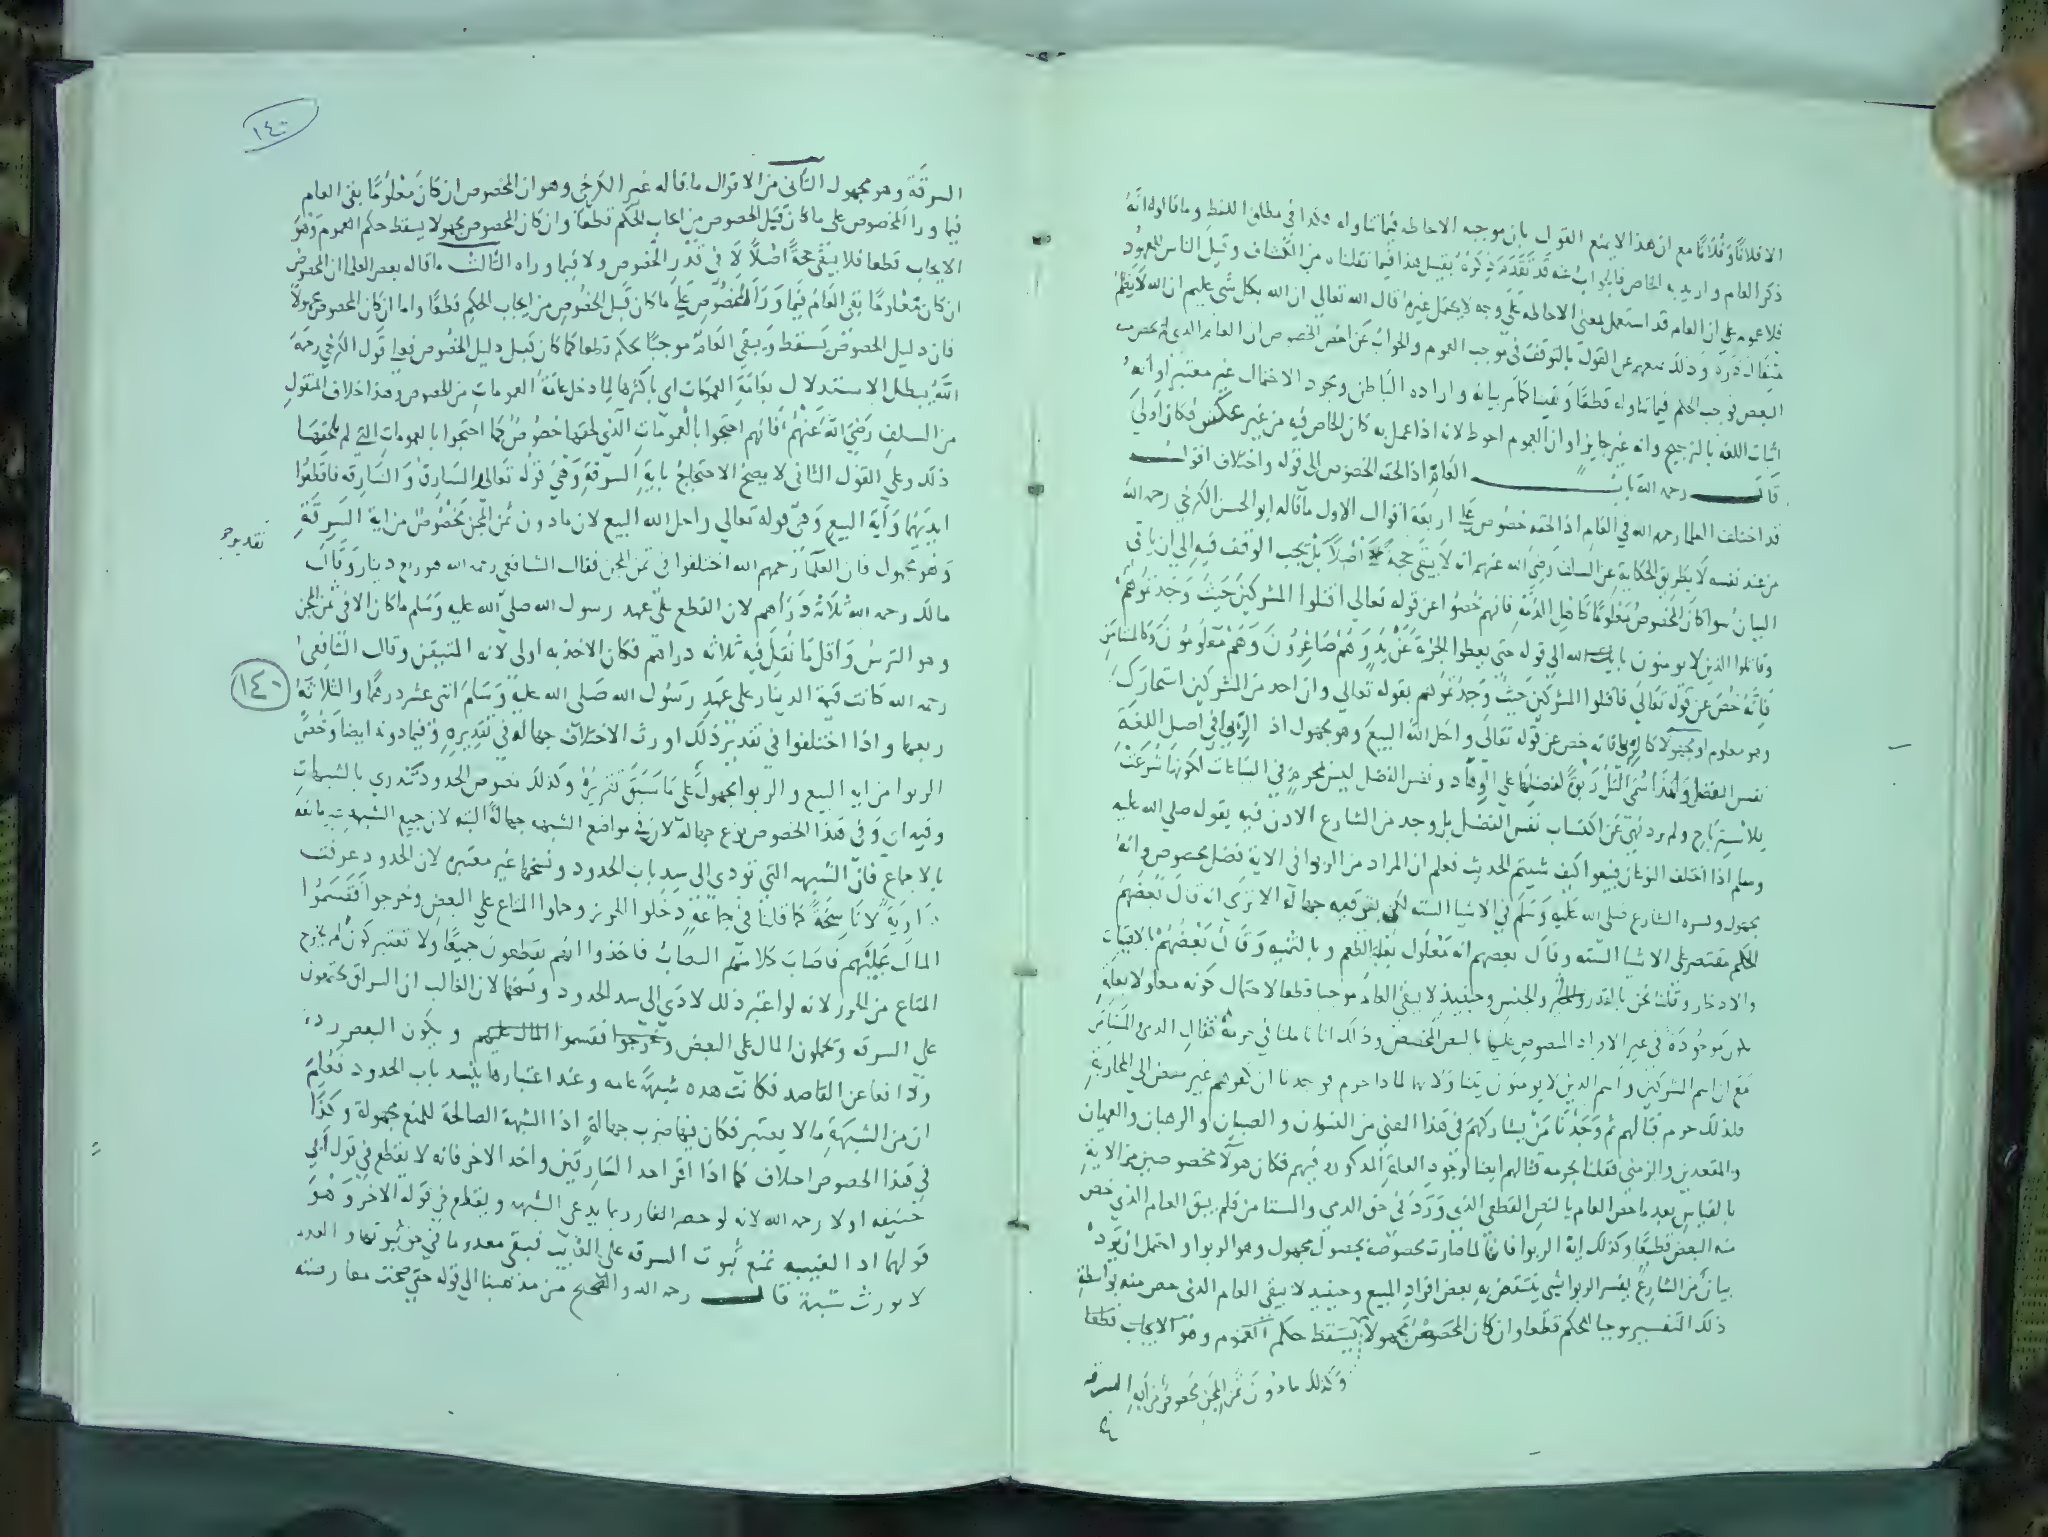 الا فلانا وفلانا مع ان هذا لا يمنع القول بان موجبه الاحاطه فيما تناوله هذا في مطلق اللفظ وما قالوا انه
ذكر العام واريد به الخاص فالجواب عنه قد تقدم ذكره بقيل هذا فيما نقلناه من الكشاف وقيل الناس للمعهود
فلا عموم على ان العام قد استعمل بمعنى الاحاطه على وجه لا يحتمل غيره قال الله تعالى ان الله بكل شي عليم ان الله لا يظلم
مثقال ذره وذلك يمنعهم عن القول بالتوقف في موجب العموم والجواب عن اخص الخصوص ان العام الذى لم يخص منه
البعض يوجب الحكم فيما تناوله قطعا ويقينا كما مر بيانه وارادة الباطن ومجرد الاحتمال غير معتبر او انه
اثبات اللغه بالترجيح وانه غير جايز او ان العموم احوط لانه اذا عمل به كان الخاص فيه من غير عكس فكان اولى
قال رحمه الله باب العام اذا لحقه الخصوص الى قوله واختلاف اقوال
قد اختلف العلما رحمهم الله في العام اذا لحقه خصوص على اربعة اقوال الاول ما قاله ابو الحسن الكرخي رحمه الله
من عند نفسه لا بطريق الحكاية عن السلف رضي الله عنهم انه لا يبقى حجة اصلا بل يجب الوقف فيه الى ان ياتي
البيان سوا كان الخصوص معلوما كاهل الذمة فانهم خصوا عن قوله تعالى اقتلوا المشركين حيث وجدتموهم
وقاتلوا الذين لا يومنون بالله الى قوله حتى يعطوا الجزية عن يد وهم صاغرون وهم معلومون وكالمستامن
فانه خص عن قوله تعالى فاقتلوا المشركين حيث وجدتموهم بقوله تعالى وان احد من المشركين استجارك
وهو معلوم او مجهولا كالربوا فانه خص عن قوله تعالى واحل الله البيع وهو مجهول اذ الربوا في اصل اللغة
نفس الفضل ولهذا سمي التل ربوة لفضلها على الوهاد ونفس الفضل ليس بمحرم في البياعات لكونها شرعت
للاسترباح ولم يرد نهي عن اكتساب نفس الفضل بل وجد من الشارع الاذن فيه بقوله صلى الله عليه
وسلم اذا اختلف النوعان فبيعوا كيف شيتم الحديث فعلم ان المراد من الربوا في الاية فضل مخصوص وانه
مجهول وفسره الشارع صلى الله عليه وسلم في الاشيا الستة لكن بقي فيه جهالة الا ترى انه قال بعضهم
الحكم مقتصر على الاشيا الستة وقال بعضهم انه معلول بعلة الطعم وبالثمنيه وقال بعضهم بالاقتيات
والادخار وقلنا نحن بالقدر والجنس وحينيذ لا يبقى العام موجبا قطعا لاحتمال كونه معلولا بعلة
تكون موجودة في غير الافراد المنصوص عليها بالنص المخصص وذلك انا تاملنا في حرمة قتال الذمي والمستامن
مع ان اسم المشركين واسم الذين لا يومنون يتناولانهما لماذا حرم فوجدنا ان كفرهم غير مفض الى المحاربة
فلذلك حرم قتالهم ثم وجدنا من يشاركهم في هذا المعنى من النسوان والصبيان والرهبان والعميان
والمقعدين والزمنى فقلنا بحرمة قتالهم ايضا لوجود العلة المذكورة فيهم فكان هولا مخصوصين من الاية
بالقياس بعد ما خص العام بالنص القطعي الذي ورد في حق الذمي والمستامن فلم يبق العام الذي خص
منه البعض قطعيا وكذلك اية الربوا فانها لما صارت مخصوصة بمخصوص مجهول وهو الربوا واحتمل ان يرد
بيان من الشارع بتفسير الربوا شي ينتقض به بعض افراد المبيع وحينيذ لا يبقى العام الذى خص منه بواسطة
ذلك التفسير موجبا للحكم قطعا وان كان الخصوص مجهولا يسقط حكم العموم وهو الايجاب قطعا
وكذلك ما دون ثمن المجن مخصوص من اية السرقه
١٤٠
السرقة وهو مجهول الثاني من الاقوال ما قاله غير الكرخي وهو ان الخصوص ان كان معلوما بقى العام
فيما ورا المخصوص على ما كان قبل الخصوص من ايجاب الحكم قطعا وان كان الخصوص مجهولا يسقط حكم العموم وهو
الايجاب قطعا فلا يبقى حجة اصلا لا في قدر الخصوص ولا فيما وراه الثالث ما قاله بعض العلما ان الخصوص
ان كان معلوما بقى العام فيما ورا المخصوص على ما كان قبل الخصوص من ايجاب الحكم قطعا واما ان كان الخصوص مجهولا
فان دليل الخصوص يسقط ويبقى العام موجبا حكمه قطعا كما كان قبل دليل الخصوص فعلى قول الكرخي رحمه
الله يبطل الاستدلال بعامة العمومات اي باكثرها لما دخل عامة العمومات من الخصوص وهذا خلاف المنقول
من السلف رضي الله عنهم فانهم احتجوا بالعمومات التي لحقها خصوص كما احتجوا بالعمومات التي لم يلحقها
ذلك وعلى القول الثاني لا يصح الاحتجاج باية السرقة وهي قوله تعالى والسارق والسارقه فاقطعوا
ايديهما واية البيع وهي قوله تعالى واحل الله البيع لان ما دون ثمن المجن مخصوص من اية السرقة
وهو مجهول فان العلما رحمهم الله اختلفوا في ثمن المجن فقال الشافعي رحمه الله هو ربع دينار وقال
مالك رحمه الله ثلاثة دراهم لان القطع على عهد رسول الله صلى الله عليه وسلم ما كان الا في ثمن المجن
وهو الترس واقل ما نقل فيه ثلاثه دراهم فكان الاخذ به اولى لانه المتيقن وقال الشافعي
١٤٠
رحمه الله كانت قيمة الدينار على عهد رسول الله صلى الله عليه وسلم اثني عشر درهما والثلاثة
ربعها واذا اختلفوا في تقدير ذلك اورث الاختلاف جهالة في تقديره وفيما دونه ايضا وخص
الربوا من اية البيع والربوا مجهول على ما سبق تقريره وكذلك نصوص الحدود تندري بالشبهات
وفيه اي وفي هذا الخصوص نوع جهالة لان في مواضع الشبهه جهالة البته لان جميع الشبهات مانعه
بالاجماع فان الشبهه التي تودي الى سد باب الحدود ونسخها غير معتبره لان الحدود عرفت
دارية لا ناسخة كما قلنا في جماعة دخلوا الحرز وحملوا المتاع على البعض وخرجوا فقسموا
المال عليهم فاصاب كلا منهم النصاب فاخذوا انهم يقطعون جميعا ولا نعتبر كون لم يخرج
المتاع من الحرز لانه لو اعتبر ذلك لادي الى سد الحدود ونسخها لان الغالب ان السراق يجتمعون
على السرقه ويحملون المال على البعض وخرجوا فقسموا المال عليهم ويكون البعض ردءا
ودافعا عن القاصد فكانت هذه شبهة عامه وعند اعتبارها ينسد باب الحدود فعلم
ان من الشبهة ما لا يعتبر فكان فيها ضرب جهالة اذا الشبهة الصالحة للمنع مجهولة وكذا
في هذا الخصوص اختلاف كما اذا اقر احد السارقين واحد الاخر فانه لا يقطع في قول ابي
حنيفه اولا رحمه الله لانه لو حضر الغار ربما يدعى الشبهه ويقطع في قوله الاخر وهو
قولهما اذ الغيبه تمنع ثبوت السرقه على الغايب فبقي معدوما في حق ثبوتها و العدم
لا يورث شبهة قال رحمه الله والصحيح من مذهبنا الى قوله حتى صحت معارضته